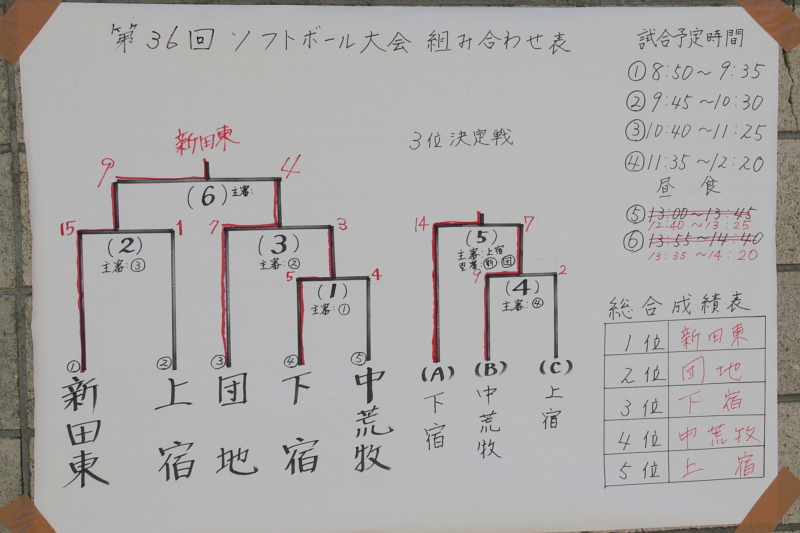 第36回 ソフトボール大会 組み合わせ表
試合予定時間
①8:50～9:35
②9:45～10:30
③10:40～11:25
④11:35～12:20
昼 食
⑤13:00～13:45
12:40～13:25
⑥13:55～14:40
13:35～14:20
新田東
9 4
(6)主審:
15 1
(2)
主審:③
7 3
(3)
主審:②
5 4
(1)
主審:①
① ② ③ ④ ⑤
新田東
上宿
団地
下宿
中荒牧
3位決定戦
14 7
(5)
主審:上宿
新・団
9 2
(4)
主審:④
(A) (B) (C)
下宿
中荒牧
上宿
総合成績表
1位 新田東
2位 団地
3位 下宿
4位 中荒牧
5位 上宿